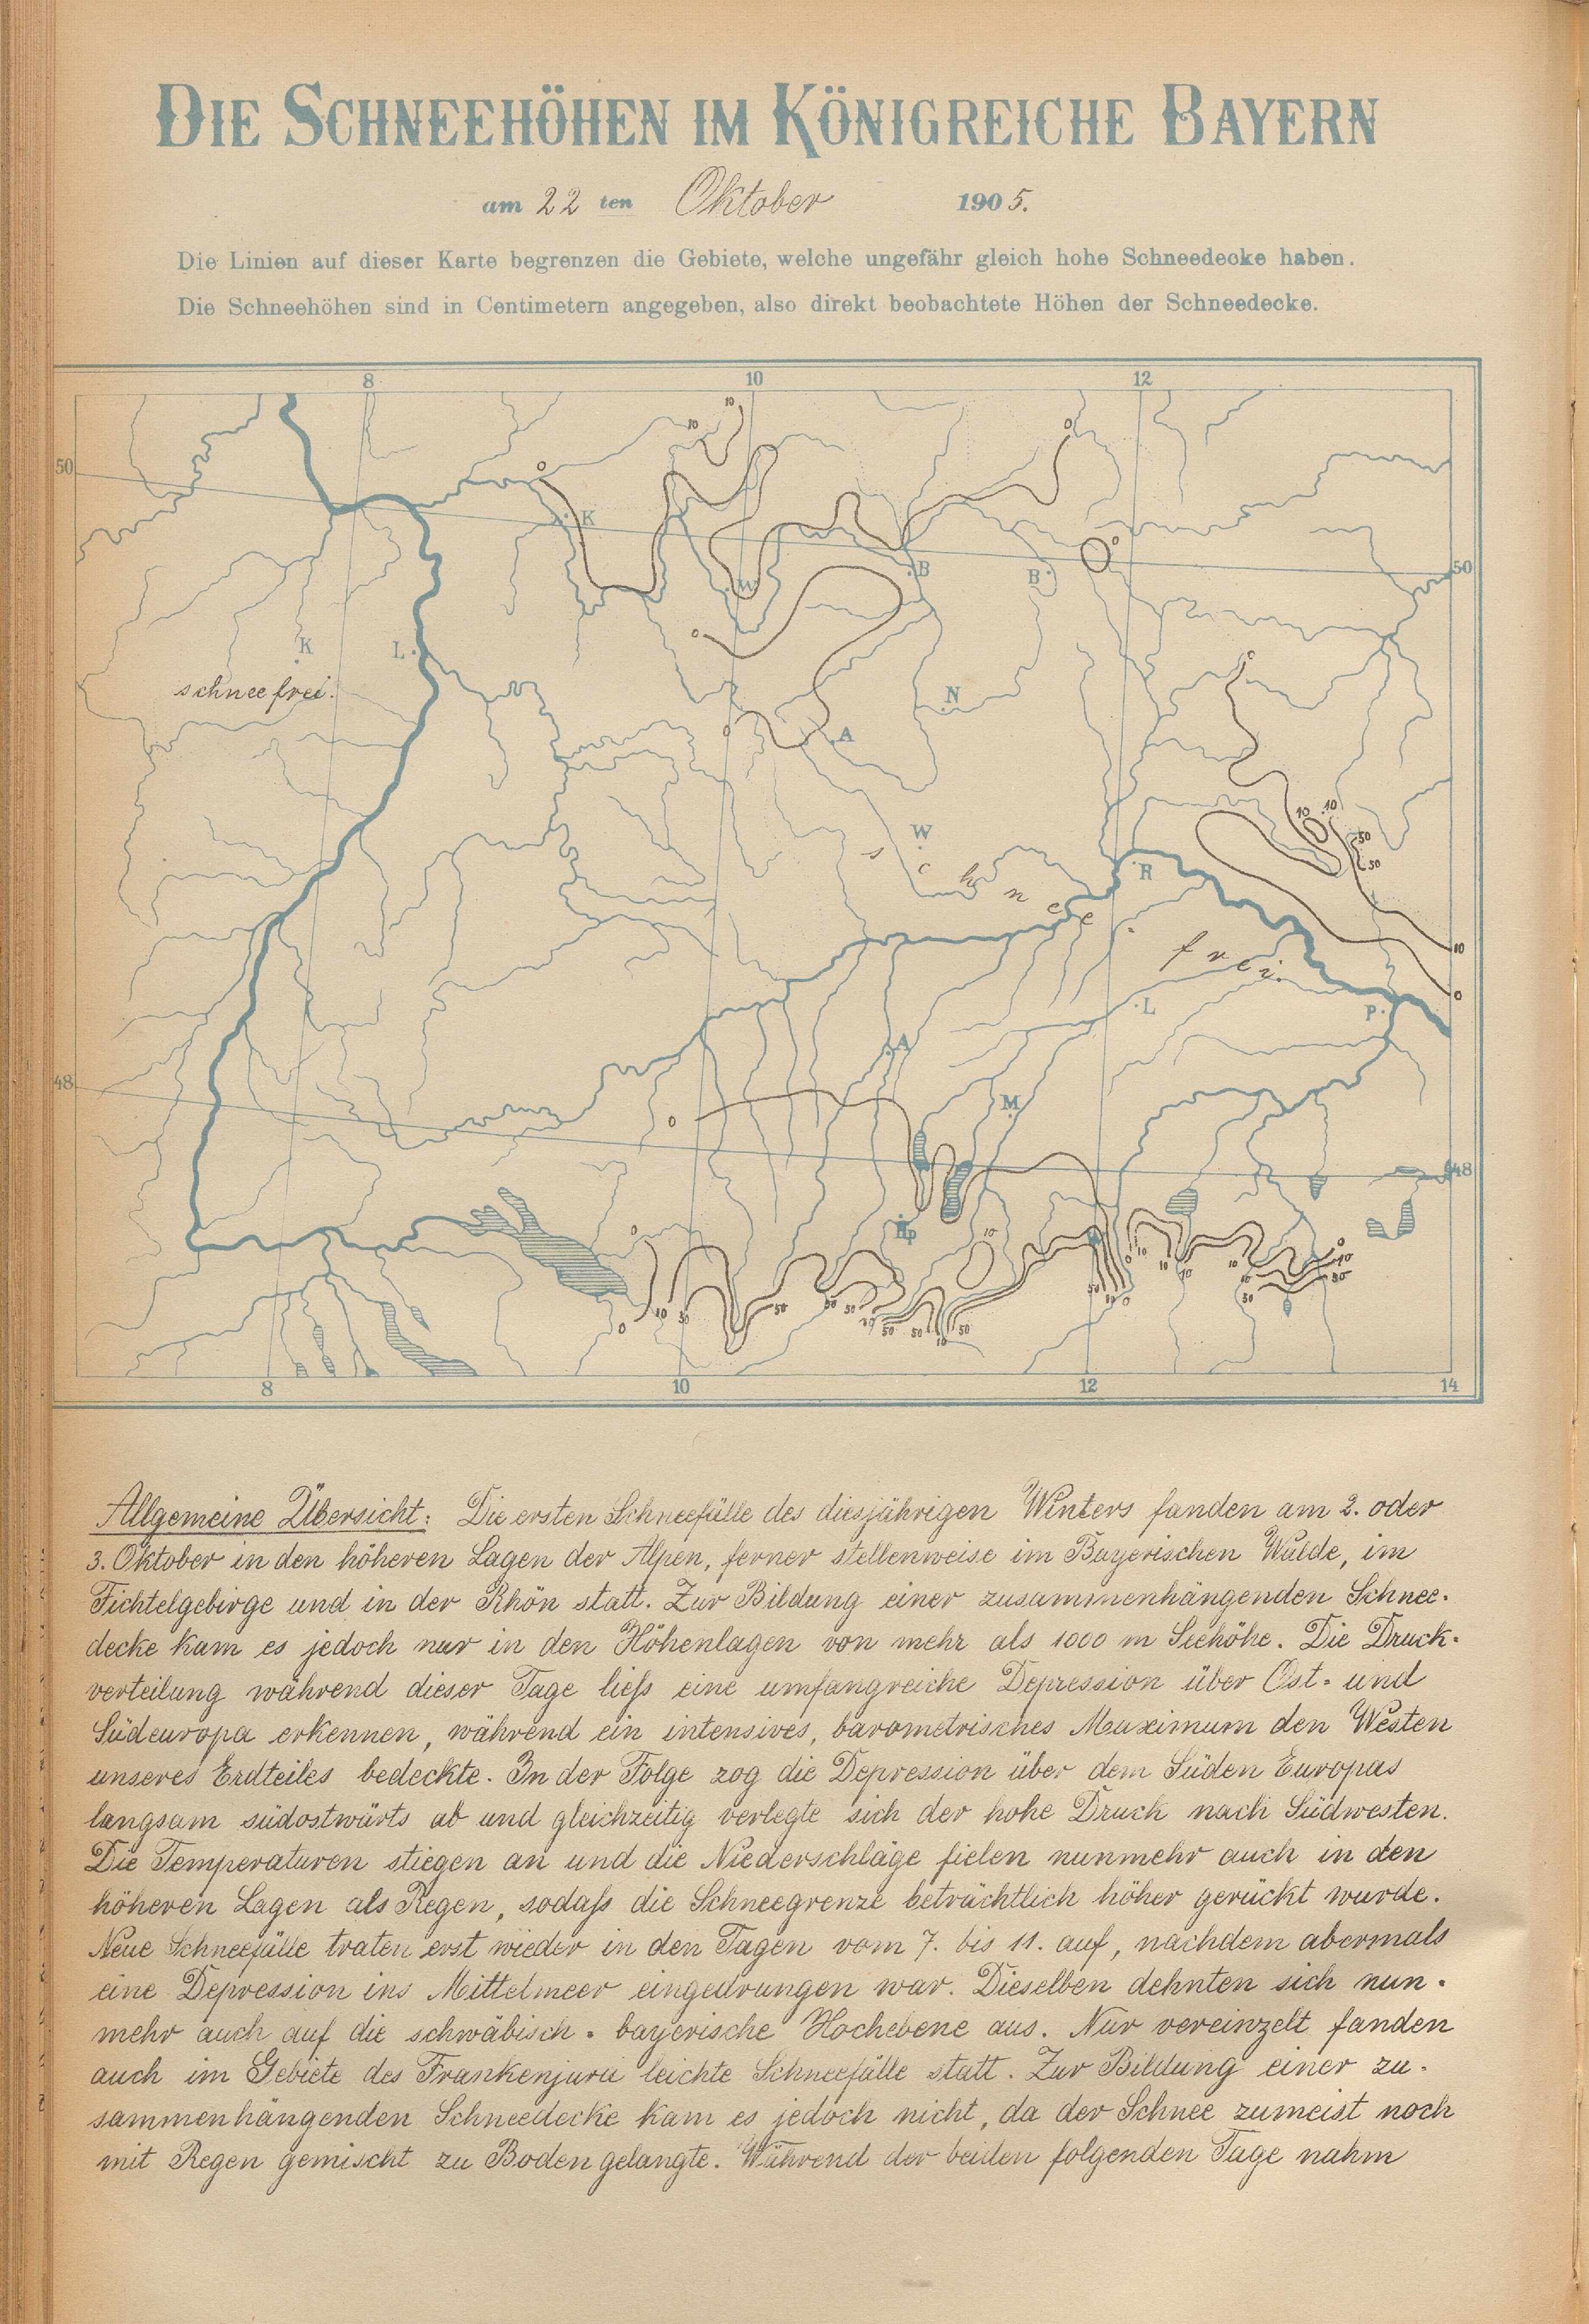 DIE SCHNEEHÖHEN IM KÖNIGREICHE BAYERN
am 22ten Oktober 1905.
Die Linien auf dieser Karte begrenzen die Gebiete, welche ungefähr gleich hohe Schneedecke haben.
Die Schneehöhen sind in Centimetern angegeben, also direkt beobachtete Höhen der Schneedecke.
8 10 12
10
10 0
50 0
K
0
B B 50
W
0
K L 0
schneefrei.
N
0 A
10 10
W 50
s c h n e e . f r e i. 50
R
10
0
L P
A
48
0 M
48
Hp
0 10 0
0 10 10 10 10 10
10 50 50 50 50 50 10 0 50 50
0 10 50 50 10 50
8 10 12 14
Allgemeine Übersicht: Die ersten Schneefälle des diesjährigen Winters fanden am 2. oder
3. Oktober in den höheren Lagen der Alpen, ferner stellenweise im Bayerischen Walde, im
Fichtelgebirge und in der Rhön statt. Zur Bildung einer zusammenhängenden Schnee-
decke kam es jedoch nur in den Höhenlagen von mehr als 1000 m Seehöhe. Die Druck-
verteilung während dieser Tage ließ eine umfangreiche Depression über Ost- und
Südeuropa erkennen, während ein intensives, barometrisches Maximum den Westen
unseres Erdteiles bedeckte. In der Folge zog die Depression über dem Süden Europas
langsam südostwärts ab und gleichzeitig verlegte sich der hohe Druck nach Südwesten.
Die Temperaturen stiegen an und die Niederschläge fielen nunmehr auch in den
höheren Lagen als Regen, sodaß die Schneegrenze beträchtlich höher gerückt wurde.
Neue Schneefälle traten erst wieder in den Tagen vom 7. bis 11. auf, nachdem abermals
eine Depression ins Mittelmeer eingedrungen war. Dieselben dehnten sich nun-
mehr auch auf die schwäbisch-bayerische Hochebene aus. Nur vereinzelt fanden
auch im Gebiete des Frankenjura leichte Schneefälle statt. Zur Bildung einer zu-
sammenhängenden Schneedecke kam es jedoch nicht, da der Schnee zumeist noch
mit Regen gemischt zu Boden gelangte. Während der beiden folgenden Tage nahm